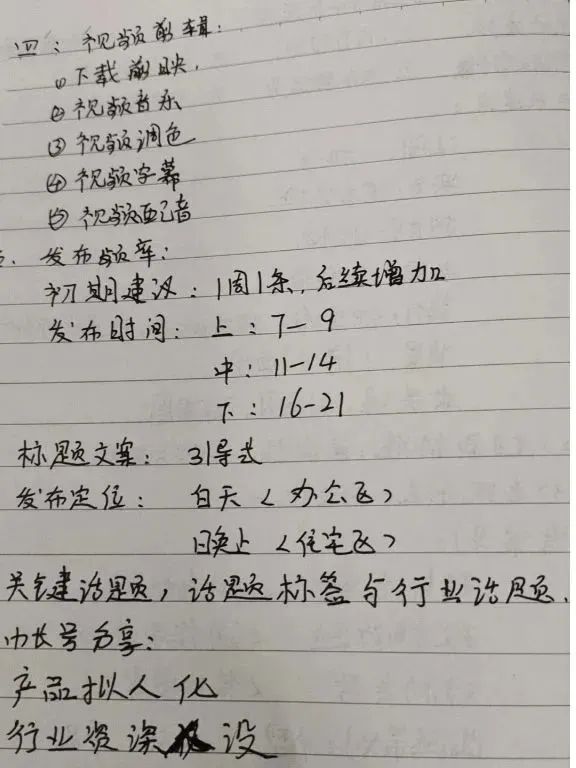 四：视频剪辑：
① 下载剪映.
② 视频音乐
③ 视频调色
④ 视频字幕
⑤ 视频配音
发布频率：
初期建议：1周1条，后续增加
发布时间：上：7-9
中：11-14
下：16-21
标题文案：引导式
发布定位：白天〈办公区〉
晚上〈住宅区〉
关键话题，话题标签与行业话题.
号分享：
产品拟人化
行业资深 设